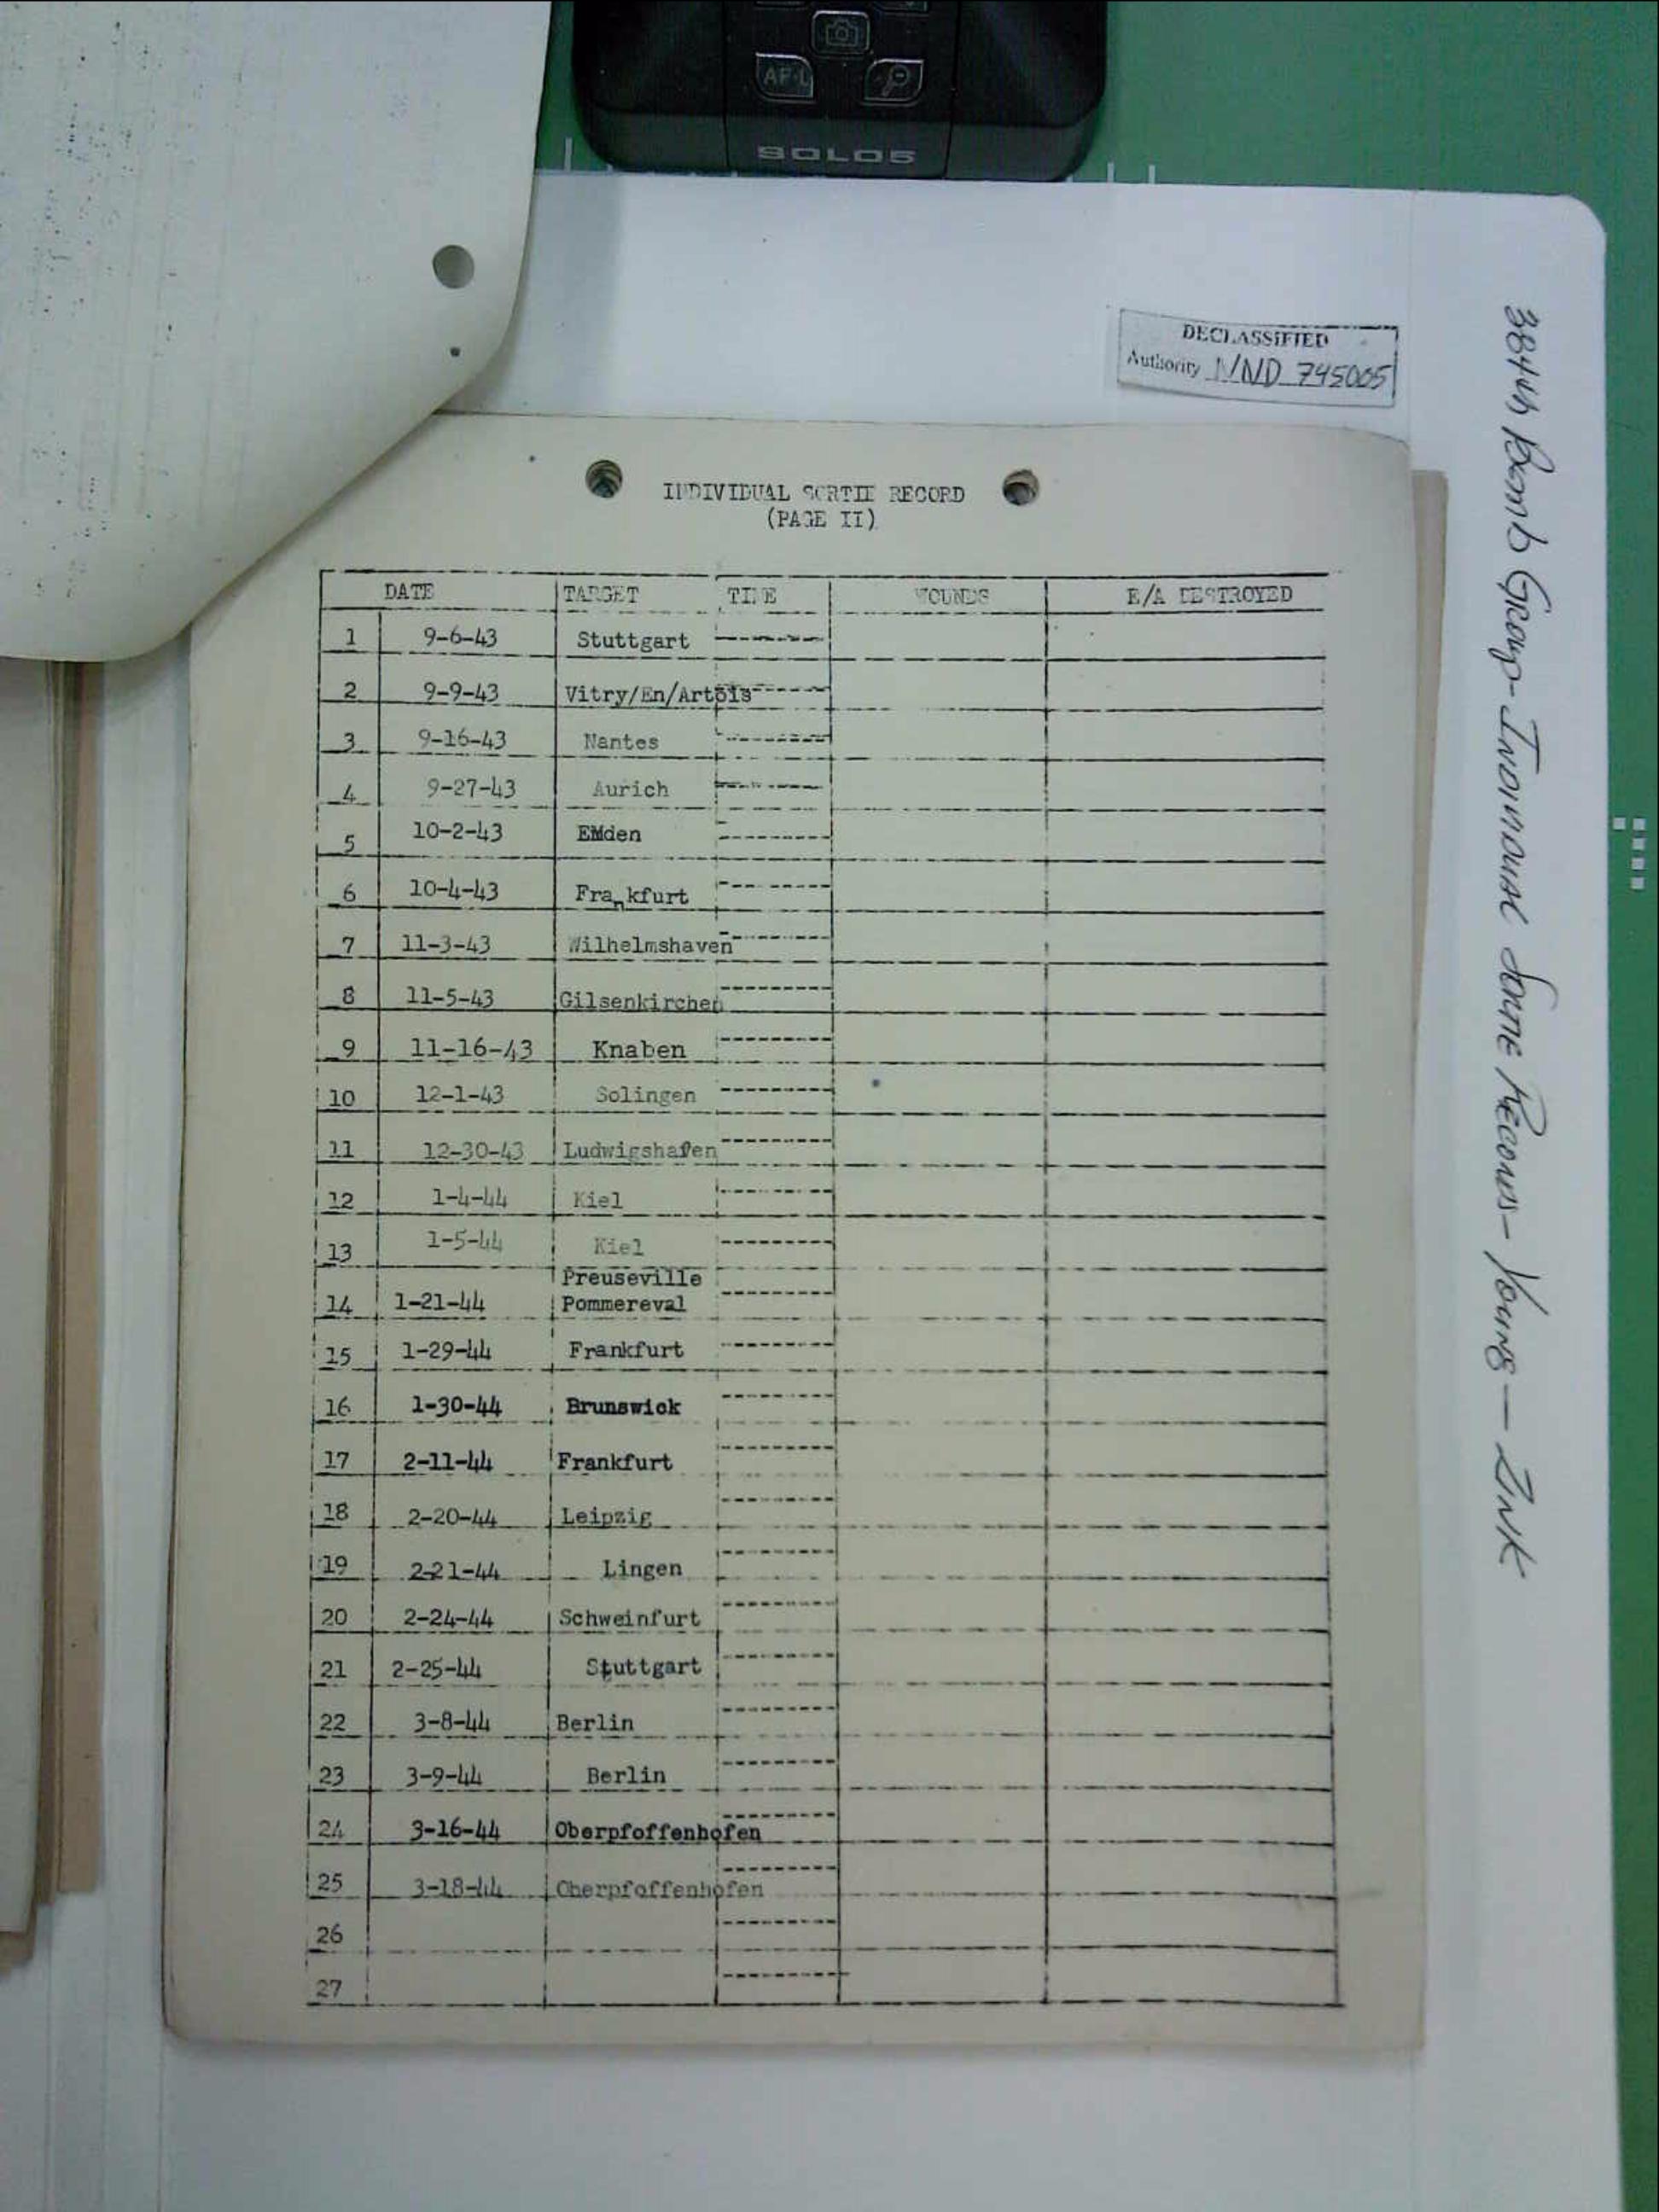 AF-L
SOLO5
DECLASSIFIED
Authority NND 745005
384th Bomb Group - Individual Sortie Records - Young - Zink
INDIVIDUAL SORTIE RECORD
(PAGE II)
DATE TARGET TIME WOUNDS E/A DESTROYED
1 9-6-43 Stuttgart ---------
2 9-9-43 Vitry/En/Artois ---------
3 9-16-43 Nantes ---------
4 9-27-43 Aurich ---------
5 10-2-43 EMden ---------
6 10-4-43 Frankfurt ---------
7 11-3-43 Wilhelmshaven ---------
8 11-5-43 Gilsenkirchen ---------
9 11-16-43 Knaben ---------
10 12-1-43 Solingen ---------
11 12-30-43 Ludwigshafen ---------
12 1-4-44 Kiel ---------
13 1-5-44 Kiel ---------
Preuseville
14 1-21-44 Pommereval ---------
15 1-29-44 Frankfurt ---------
16 1-30-44 Brunswick ---------
17 2-11-44 Frankfurt ---------
18 2-20-44 Leipzig ---------
19 2-21-44 Lingen ---------
20 2-24-44 Schweinfurt ---------
21 2-25-44 Stuttgart ---------
22 3-8-44 Berlin ---------
23 3-9-44 Berlin ---------
24 3-16-44 Oberpfoffenhofen ---------
25 3-18-44 Oberpfoffenhofen ---------
26 ---------
27 ---------